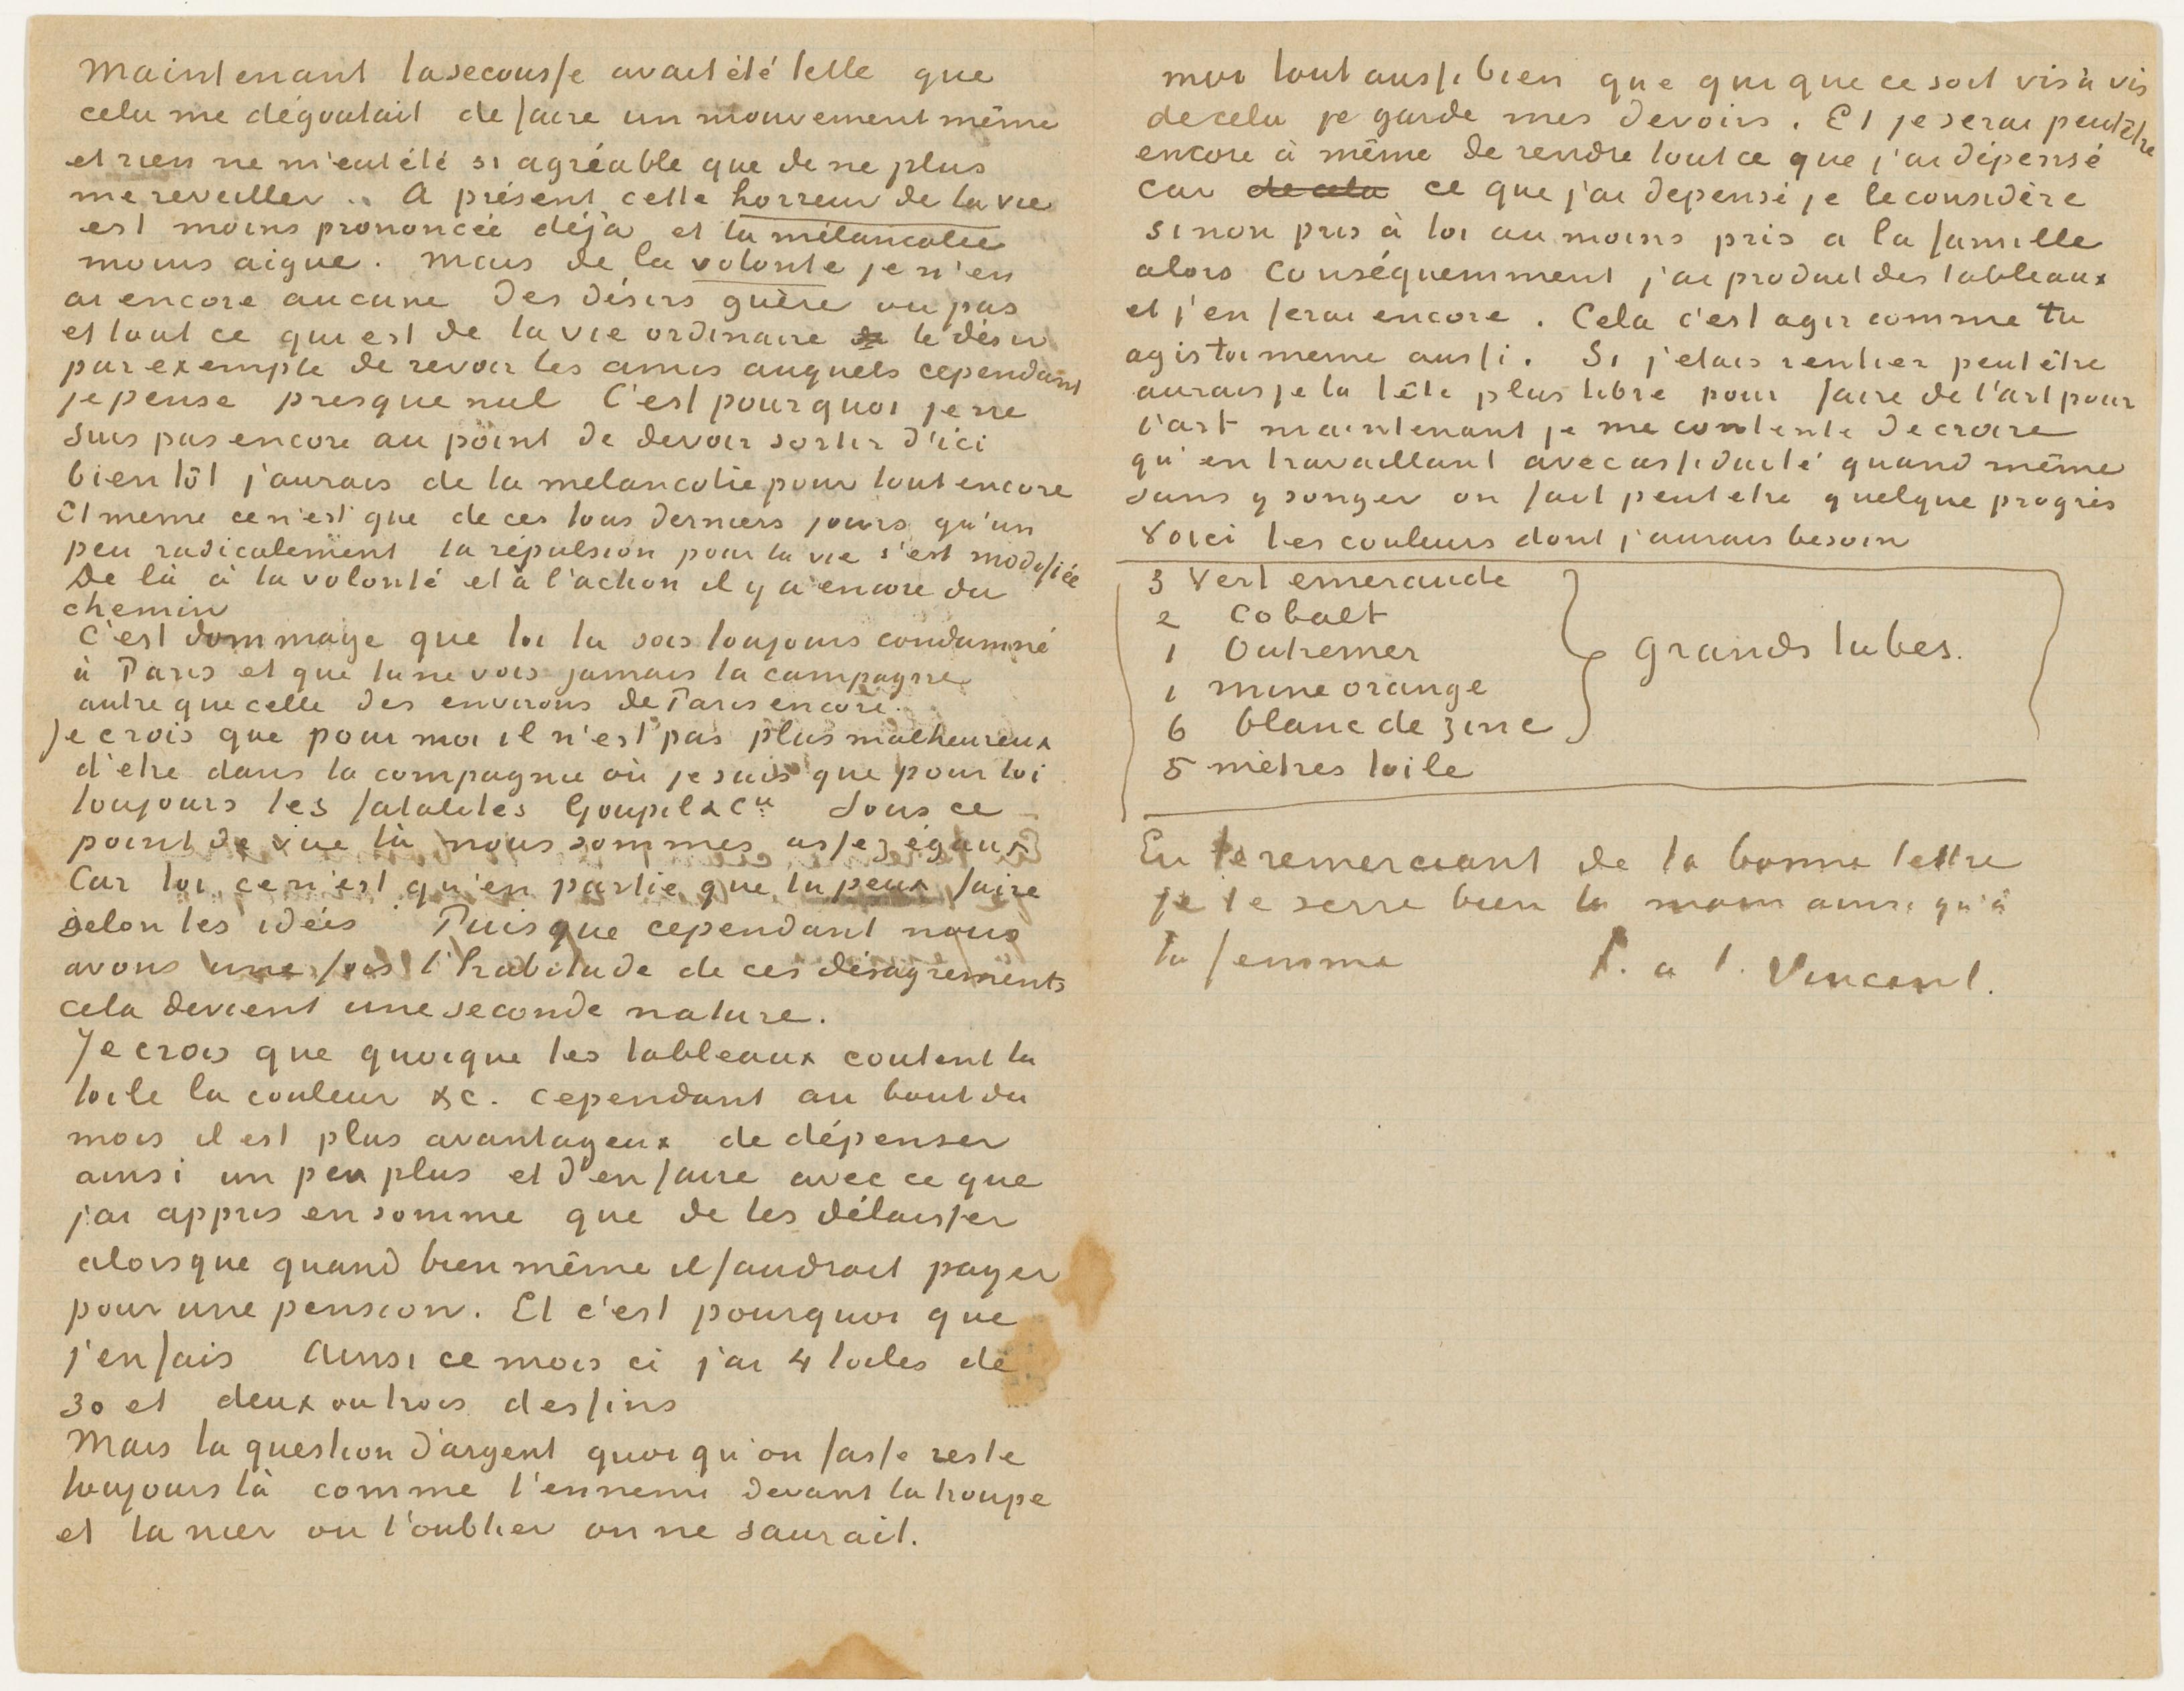 Maintenant la secousse avait été telle que
cela me dégoutait de faire un mouvement même
et rien ne m'eut été si agréable que de ne plus
me reveiller.. A présent cette horreur de la vie
est moins prononcée déjà et la mélancolie
moins aigue. Mais de la volonté je n'en
ai encore aucune Des désirs guère ou pas
et tout ce qui est de la vie ordinaire de le désir
par exemple de revoir les amis auquels cependant
je pense presque nul C'est pourquoi je ne
suis pas encore au point de devoir sortir d'ici
bientôt j'aurais de la melancolie pour tout encore
Et meme ce n'est que de ces tous derniers jours qu'un
peu radicalement la répulsion pour la vie s'est modifiée
De là à la volonté et à l'action il y a encore du
chemin
C'est dommage que toi tu sois toujours condamné
à Paris et que tu ne vois jamais la campagne
autre que celle des environs de Paris encore.
Je crois que pour moi il n'est pas plus malheureux
d'etre dans la compagnie où je suis que pour toi
toujours les fatalites Goupil & Cie Sous ce
point de vue là nous sommes assez égaux
Car toi ce n'est qu'en partie que tu peux faire
selon tes idées Puisque cependant nous
avons une fois l'habitude de ces désagrements
cela devient une seconde nature.
Je crois que quoique les tableaux coutent la
toile la couleur &c. cependant au bout du
mois il est plus avantageux de dépenser
ainsi un peu plus et d'en faire avec ce que
j'ai appris en somme que de les délaisser
alors que quand bien même il faudrait payer
pour une pension. Et c'est pourquoi que
j'en fais Ainsi ce mois ci j'ai 4 toiles de
30 et deux ou trois dessins
Mais la question d'argent quoi qu'on fasse reste
toujours là comme l'ennemi devant la troupe
et la nier ou l'oublier on ne saurait.
moi tout aussi bien que qui que ce soit vis à vis
de cela je garde mes devoirs. Et je serai peutêtre
encore à même de rendre tout ce que j'ai dépensé
car de cela ce que j'ai depensé je le considère
sinon pris à toi au moins pris a la famille
alors conséquemment j'ai produit des tableaux
et j'en ferai encore. Cela c'est agir comme tu
agis toi meme aussi. Si j'etais rentier peut être
aurais je la tête plus libre pour faire de l'art pour
l'art maintenant je me contente de croire
qu'en travaillant avec assiduité quand même
sans y songer on fait peut etre quelque progrès
Voici les couleurs dont j'aurais besoin
3 vert emeraude
2 cobalt
1 Outremer
grands tubes.
1 mine orange
6 blanc de zinc
5 mètres toile
En te remerciant de ta bonne lettre
je te serre bien la main ainsi qu'à
ta femme t. à t. Vincent.